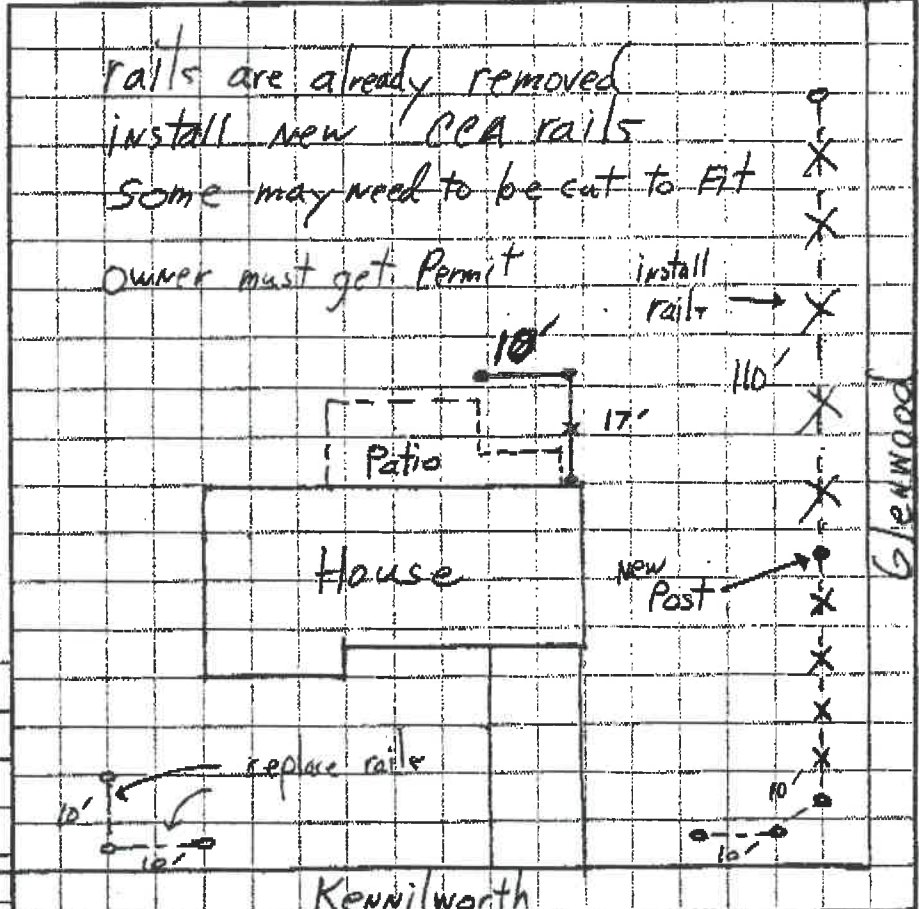 rails are already removed
install new CCA rails
Some may need to be cut to Fit
Owner must get Permit
install
rails
10'
110'
17'
Patio
Glenwood
House
New
Post
replace rails
10'
10'
10'
10'
Kennilworth